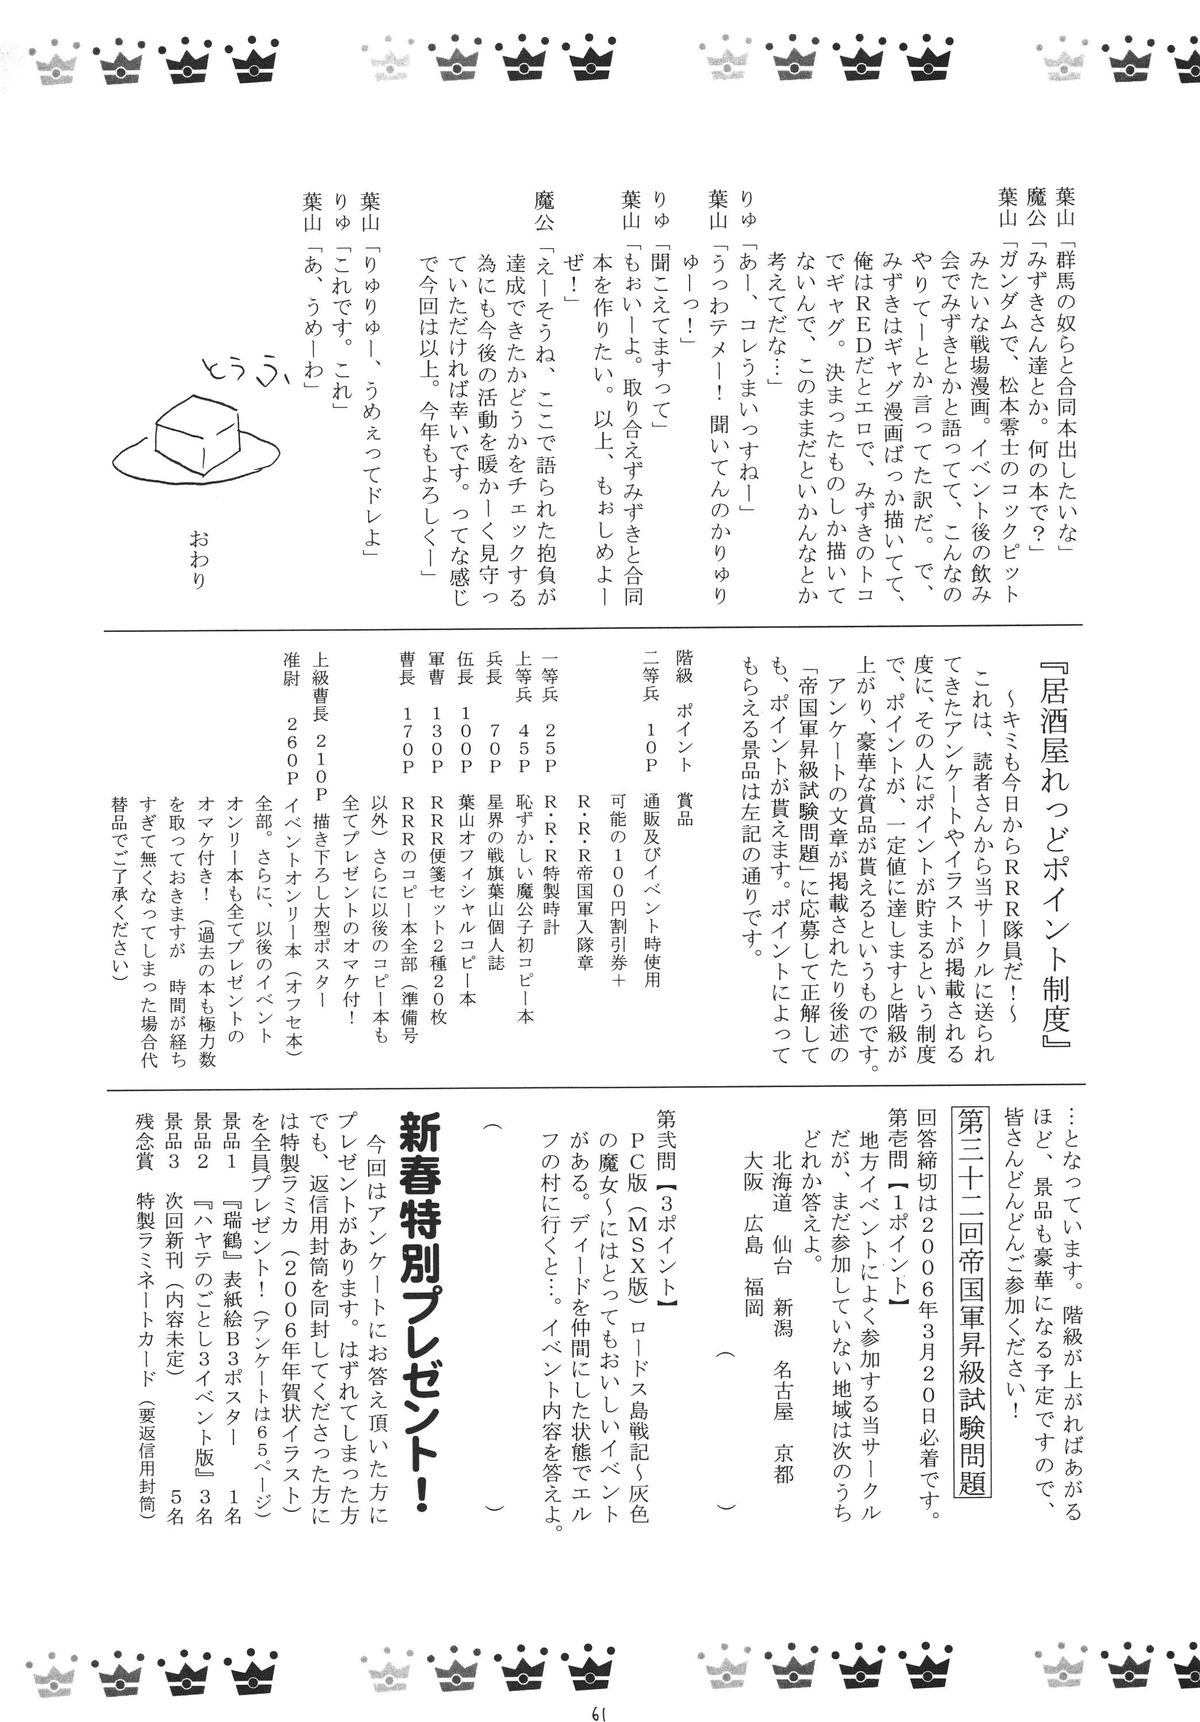 葉山「群馬の奴らと合同本出したいな」
魔公「みずきさん達とか。何の本で？」
葉山「ガンダムで、松本零士のコックピット
みたいな戦場漫画。イベント後の飲み
会でみずきとかと語ってて、こんなの
やりてーとか言ってた訳だ。で、
みずきはギャグ漫画ばっか描いてて、
俺はＲＥＤだとエロで、みずきのトコ
でギャグ。決まったものしか描いて
ないんで、このままだといかんなとか
考えてだな…」
りゅ「あー、コレうまいっすねー」
葉山「うっわテメー！聞いてんのかりゅり
ゅーっ！」
りゅ「聞こえてますって」
葉山「もぉいーよ。取り合えずみずきと合同
本を作りたい。以上、もぉしめよー
ぜ！」
魔公「えーそうね、ここで語られた抱負が
達成できたかどうかをチェックする
為にも今後の活動を暖かーく見守っ
ていただければ幸いです。ってな感じ
で今回は以上。今年もよろしくー」
葉山「りゅりゅー、うめぇってドレよ」
りゅ「これです。これ」
葉山「あ、うめーわ」
とうふ、
おわり
『居酒屋れっどポイント制度』
～キミも今日からＲＲＲ隊員だ！～
これは、読者さんから当サークルに送られ
てきたアンケートやイラストが掲載される
度に、その人にポイントが貯まるという制度
で、ポイントが、一定値に達しますと階級が
上がり、豪華な賞品が貰えるというものです。
アンケートの文章が掲載されたり後述の
「帝国軍昇級試験問題」に応募して正解して
も、ポイントが貰えます。ポイントによって
もらえる景品は左記の通りです。
階級　ポイント　賞品
二等兵　１０Ｐ　通販及びイベント時使用
可能の１００円割引券＋
Ｒ・Ｒ・Ｒ帝国軍入隊章
一等兵　２５Ｐ　Ｒ・Ｒ・Ｒ特製時計
上等兵　４５Ｐ　恥ずかしい魔公子初コピー本
兵長　７０Ｐ　星界の戦旗葉山個人誌
伍長　１００Ｐ　葉山オフィシャルコピー本
軍曹　１３０Ｐ　ＲＲＲ便箋セット２種２０枚
曹長　１７０Ｐ　ＲＲＲのコピー本全部（準備号
以外）さらに以後のコピー本も
全てプレゼントのオマケ付！
上級曹長　２１０Ｐ　描き下ろし大型ポスター
准尉　２６０Ｐ　イベントオンリー本（オフセ本）
全部。さらに、以後のイベント
オンリー本も全てプレゼントの
オマケ付き！（過去の本も極力数
を取っておきますが　時間が経ち
すぎて無くなってしまった場合代
替品でご了承ください）
…となっています。階級が上がればあがる
ほど、景品も豪華になる予定ですので、
皆さんどんどんご参加ください！
第三十二回帝国軍昇級試験問題
回答締切は２００６年３月２０日必着です。
第壱問【１ポイント】
地方イベントによく参加する当サークル
だが、まだ参加していない地域は次のうち
どれか答えよ。
北海道　仙台　新潟　名古屋　京都
大阪　広島　福岡
（　　　　　　　　）
第弐問【３ポイント】
ＰＣ版（ＭＳＸ版）ロードス島戦記～灰色
の魔女～にはとってもおいしいイベント
がある。ディードを仲間にした状態でエル
フの村に行くと…。イベント内容を答えよ。
（　　　　　　　　）
新春特別プレゼント！
今回はアンケートにお答え頂いた方に
プレゼントがあります。はずれてしまった方
でも、返信用封筒を同封してくださった方に
は特製ラミカ（２００６年年賀状イラスト）
を全員プレゼント！（アンケートは６５ページ）
景品１　『瑞鶴』表紙絵Ｂ３ポスター　１名
景品２　『ハヤテのごとし３イベント版』３名
景品３　次回新刊（内容未定）　５名
残念賞　特製ラミネートカード（要返信用封筒）
61